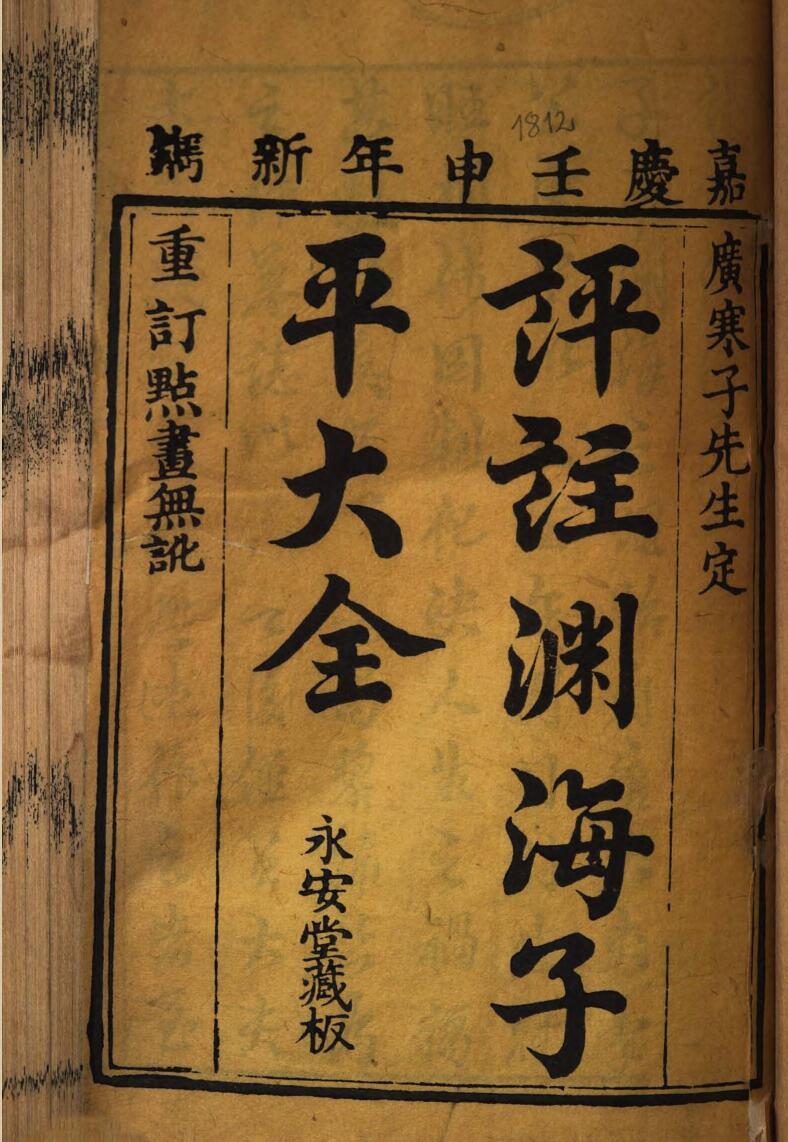 1812
嘉慶壬申年新鐫
廣寒子先生定
評註渊海子
平大全
永安堂藏板
重訂點畫無訛